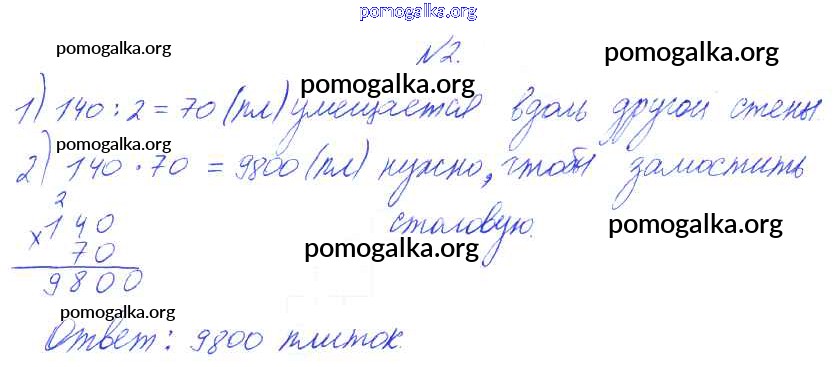 pomogalka.org
№2.
pomogalka.org pomogalka.org
pomogalka.org
1) 140 : 2 = 70 (пл) умещается вдоль другой стены.
pomogalka.org
2) 140 · 70 = 9800 (пл) нужно, чтобы замостить
столовую.
2
× 140
70
9800
pomogalka.org pomogalka.org
pomogalka.org
Ответ: 9800 плиток.